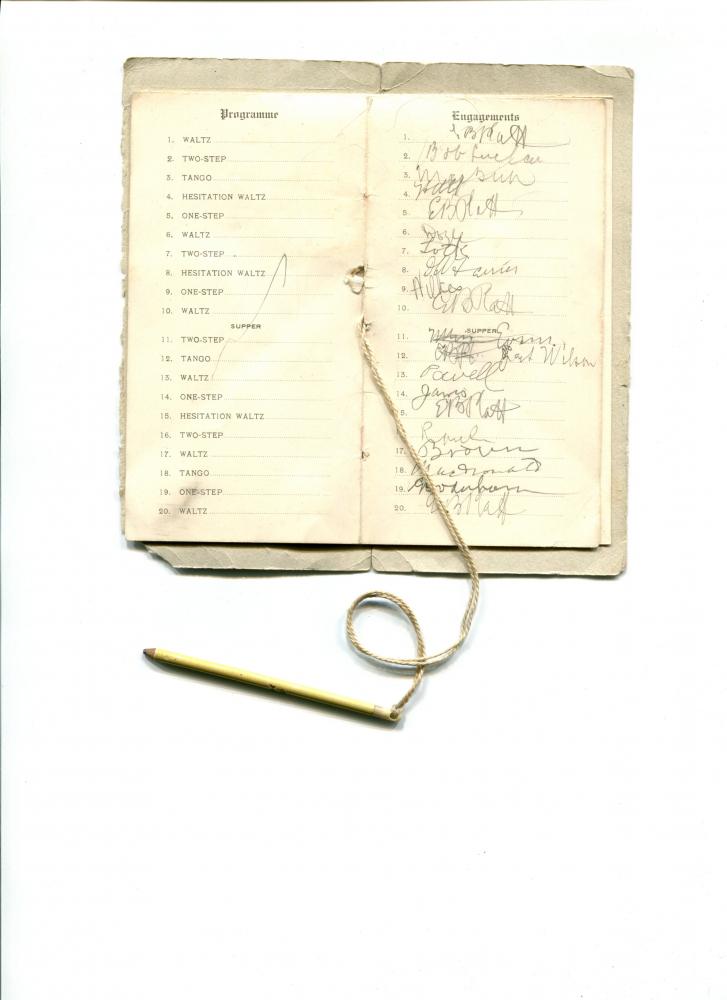 Programme
1. WALTZ
2. TWO-STEP
3. TANGO
4. HESITATION WALTZ
5. ONE-STEP
6. WALTZ
7. TWO-STEP
8. HESITATION WALTZ
9. ONE-STEP
10. WALTZ
SUPPER
11. TWO-STEP
12. TANGO
13. WALTZ
14. ONE-STEP
15. HESITATION WALTZ
16. TWO-STEP
17. WALTZ
18. TANGO
19. ONE-STEP
20. WALTZ
Engagements
1. EBPlatt
2. Bob
3.
4.
5. EBPlatt
6.
7.
8.
9.
10. EBPlatt
SUPPER
11. Evans
12. Bert Wilson
13. Powell
14. James
5. EBPlatt
17. Brown
18. Macdonald
19. Gooderham
20. EBPlatt